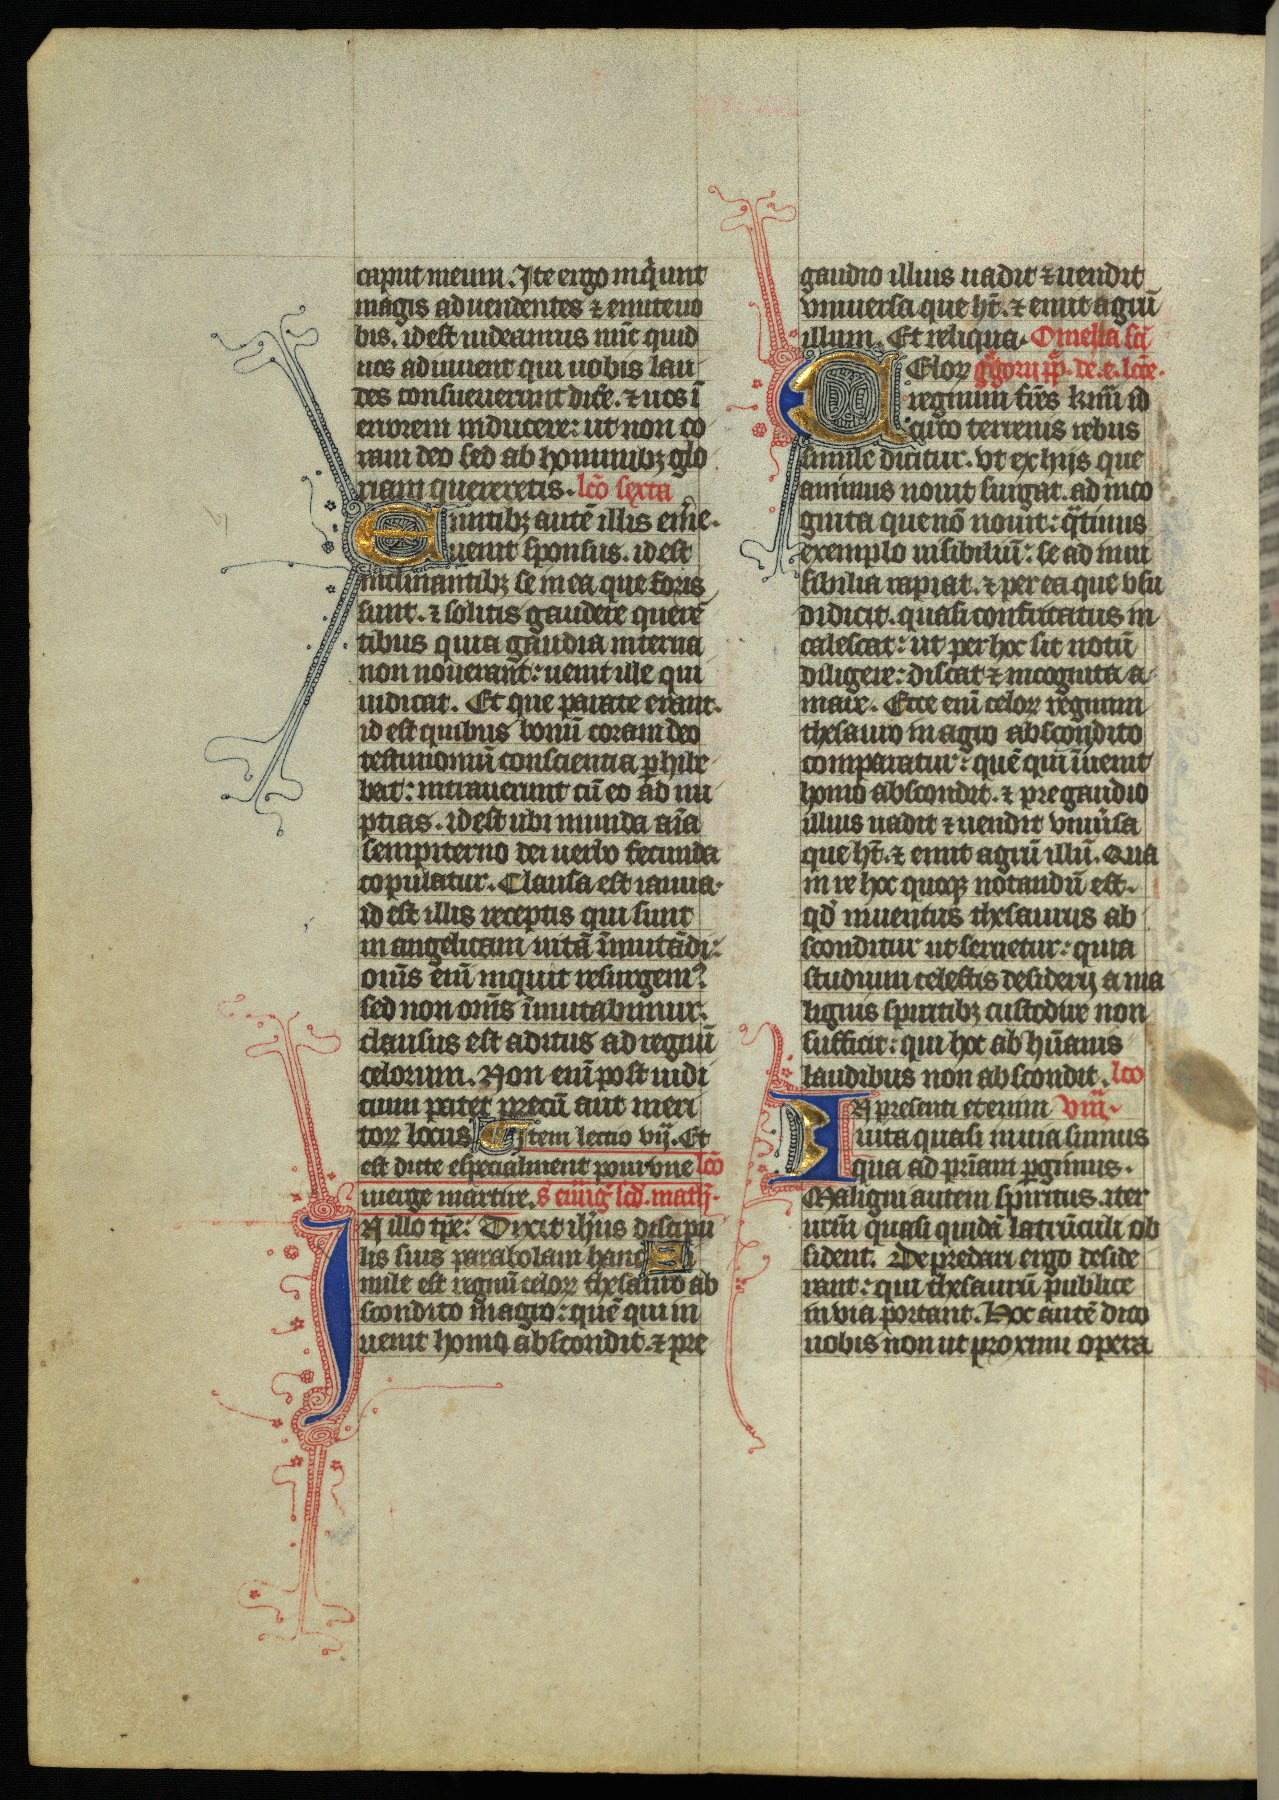 caput meum. Ite ergo inq̇unt
magis ad uendentes ⁊ emite uo
bis. id est uideamus nūc quid
uos adiuuent qui uobis lau
des consueuerunt dic̄e. ⁊ uos ī
errorem inducere: ut non co
ram deo sed ab hominibꝫ glo
riam quereretis. lcō sexta
Euntibꝫ autē illis em̄e.
uenit sponsus. id est
inclinantibꝫ se in ea que foris
sunt. ⁊ solitis gaudere querē
tibus quia gaudia interna
non nouerant: uenit ille qui
iudicat. Et que parate erant.
id est quibus bonū coram deo
testimoniū conscientia ꝑhibe
bat: intrauerunt cū eo ad nu
ptias. id est ubi munda aīa
sempiterno dei uerbo fecunda
copulatur. Clausa est ianua.
id est illis receptis qui sunt
in angelicam uitā īmutādi:
om̄s enī inquit resurgem᷒
sed non om̄s īmutabimur.
clausus est aditus ad regnū
celorum. Non enī post iudi
cium patet precū aut meri
toꝝ locus Item lectio vij. Et
est dite especialment pour vne lcō
uierge martire. s̄ euūḡ scd̄. math̄.
IN illo tp̄e: Dixit ih̄us discipu
lis suis parabolam hanc Si
mile est regnū celoꝝ thesauro ab
scondito in agro: quē qui in
uenit homo abscondit. ⁊ pre
gaudio illius uadit ⁊ uendit
vniuersa que ht̄. ⁊ emit agrū
illum. Et reliqua. Omelia sc̄i
Celoꝝ g̊gorij pp̄. de. e. lcōe.
regnum fr̄es km̄i id
circo terrenis rebus
simile dicitur. vt ex hijs que
animus nouit surgat. ad inco
gnita que nō nouit: q̄tinus
exemplo uisibiliū: se ad inui
sibilia rapiat. ⁊ per ea que vsu
didicit. quasi confricatus in
calescat: ut per hoc sit notū
diligere: discat ⁊ incognita a
mare. Ecce enī celoꝝ regnum
thesauro in agro abscondito
comparatur: quē qui īuenit
homo abscondit. ⁊ pre gaudio
illius uadit ⁊ uendit vniūsa
que ht̄. ⁊ emit agrū illū. Qua
in re hoc quoqꝫ notandū est.
qd̄ inuentus thesaurus ab
sconditur ut seruetur: quia
studium celestis desiderij a ma
lignis spiritibꝫ custodire non
sufficit: qui hoc ab hūanis
laudibus non abscondit. lco
IN presenti etenim viij.
uita quasi in uia sumus
qua ad pr̄iam ꝑgimus.
Maligni autem spiritus. iter
nr̄m quasi quidā latrūculi ob
sident. Depredari ergo deside
rant: qui thesaurū publice
in via portant. Hoc autē dico
uobis non ut proximi opera